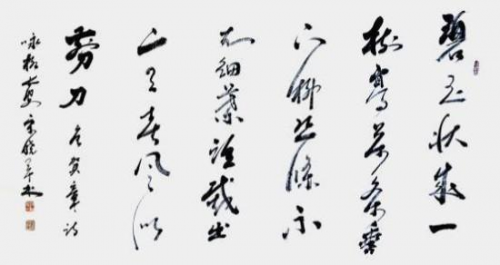 碧玉妆成一
樹高万条垂
下绿丝绦不
知細葉誰裁出
二月春风似
剪刀 贺知章诗
咏